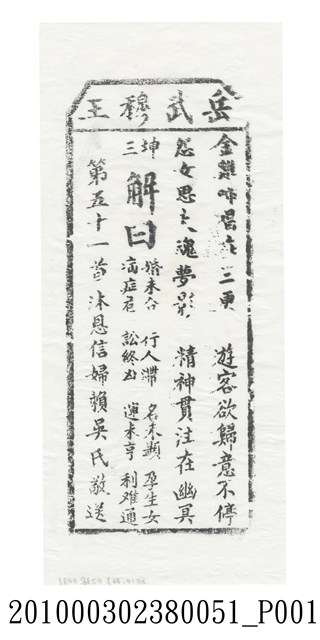 岳武穆王
金雞啼唱在三更 遊客欲歸意不停
怨女思夫魂夢影 精神貫注在幽冥
坤三
解曰
婚未合 行人滯 名未顯 孕生女
病症危 訟終凶 運未亨 利难通
第五十一首沐恩信婦賴吳氏敬送
201000302380051_P001